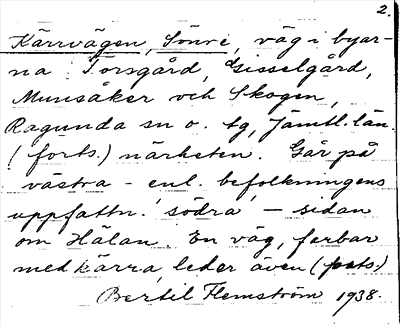 2.
Kärrvägen, Sönre, väg i byar-
na Torsgård, Gisselgård,
Munsåker och Skogen,
Ragunda sn o. tg, Jämtl. län.
(forts.) närheten. Går på
västra - enl. befolkningens
uppfattn. södra - sidan
om Hälan. En väg, farbar
med kärra, leder även (forts.)
Bertil Flemström 1938.